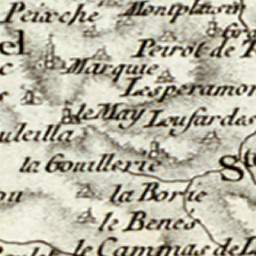 Peixche
Montplaisir
Peirot de
Marquie
Lesperamon
le May
Lousardes
uleilla
la Gouillerie
la Borie
le Benes
le Cammas de L